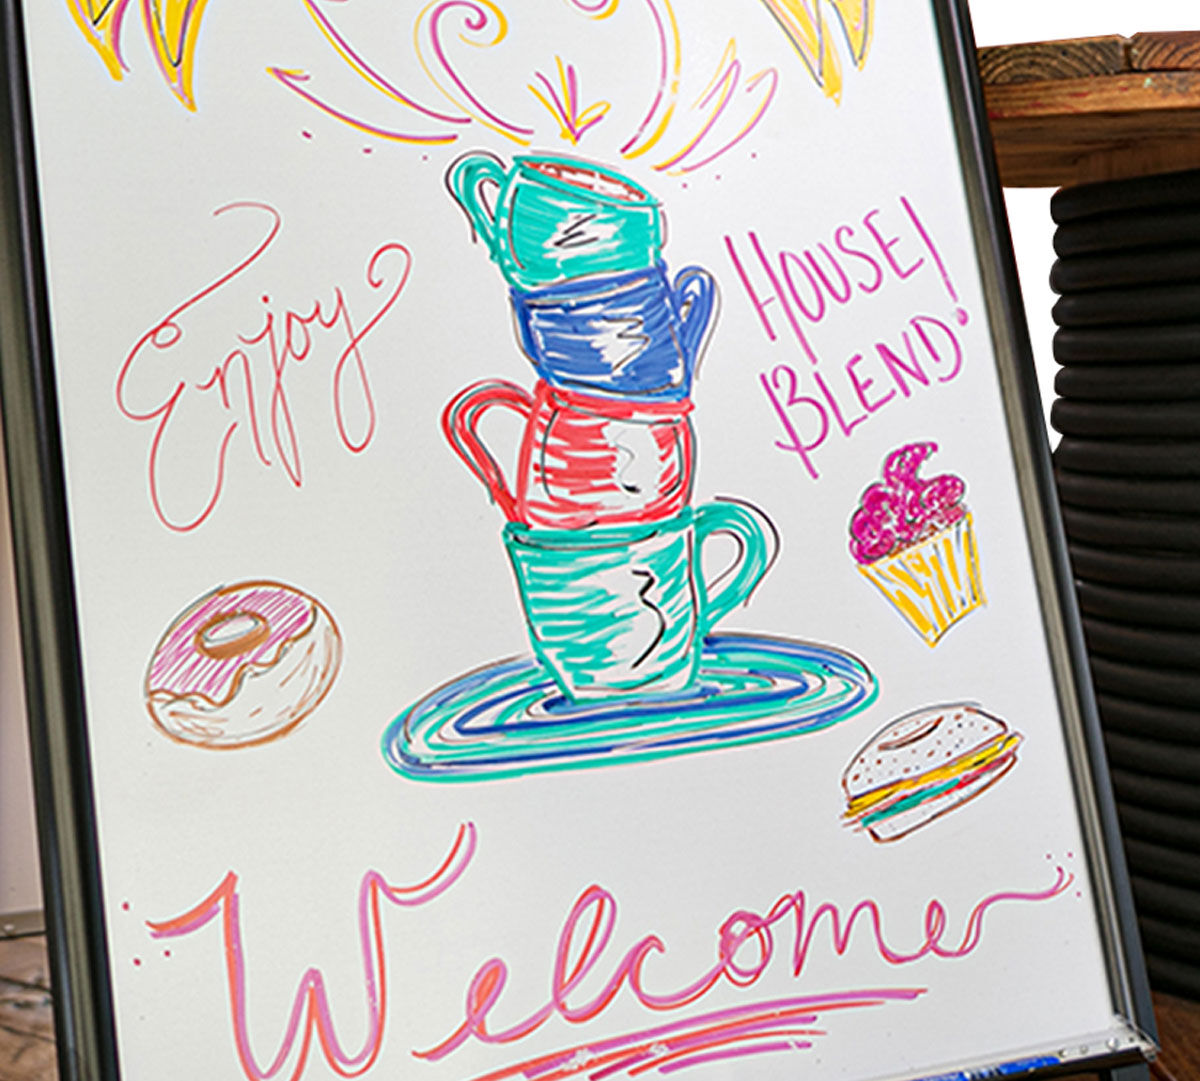 Enjoy
HOUSE!
BLEND
Welcome